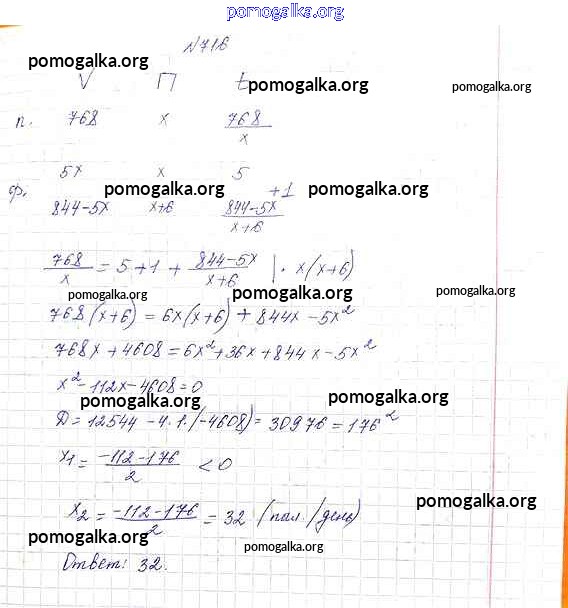 pomogalka.org
N716
pomogalka.org
V П t
pomogalka.org pomogalka.org
п. 768 x 768/x
5x x 5
ф. pomogalka.org pomogalka.org +1
844-5x x+6 844-5x/x+6
768/x = 5+1 + 844-5x/x+6 | · x(x+6)
pomogalka.org pomogalka.org pomogalka.org
768(x+6) = 6x(x+6) + 844x - 5x²
768x + 4608 = 6x² + 36x + 844x - 5x²
x² - 112x - 4608 = 0
pomogalka.org pomogalka.org
D = 12544 - 4·1·(-4608) = 30976 = 176²
x₁ = -112-176/2 < 0
pomogalka.org
x₂ = -112-176/2 = 32 (пал./день)
pomogalka.org pomogalka.org
Ответ: 32.